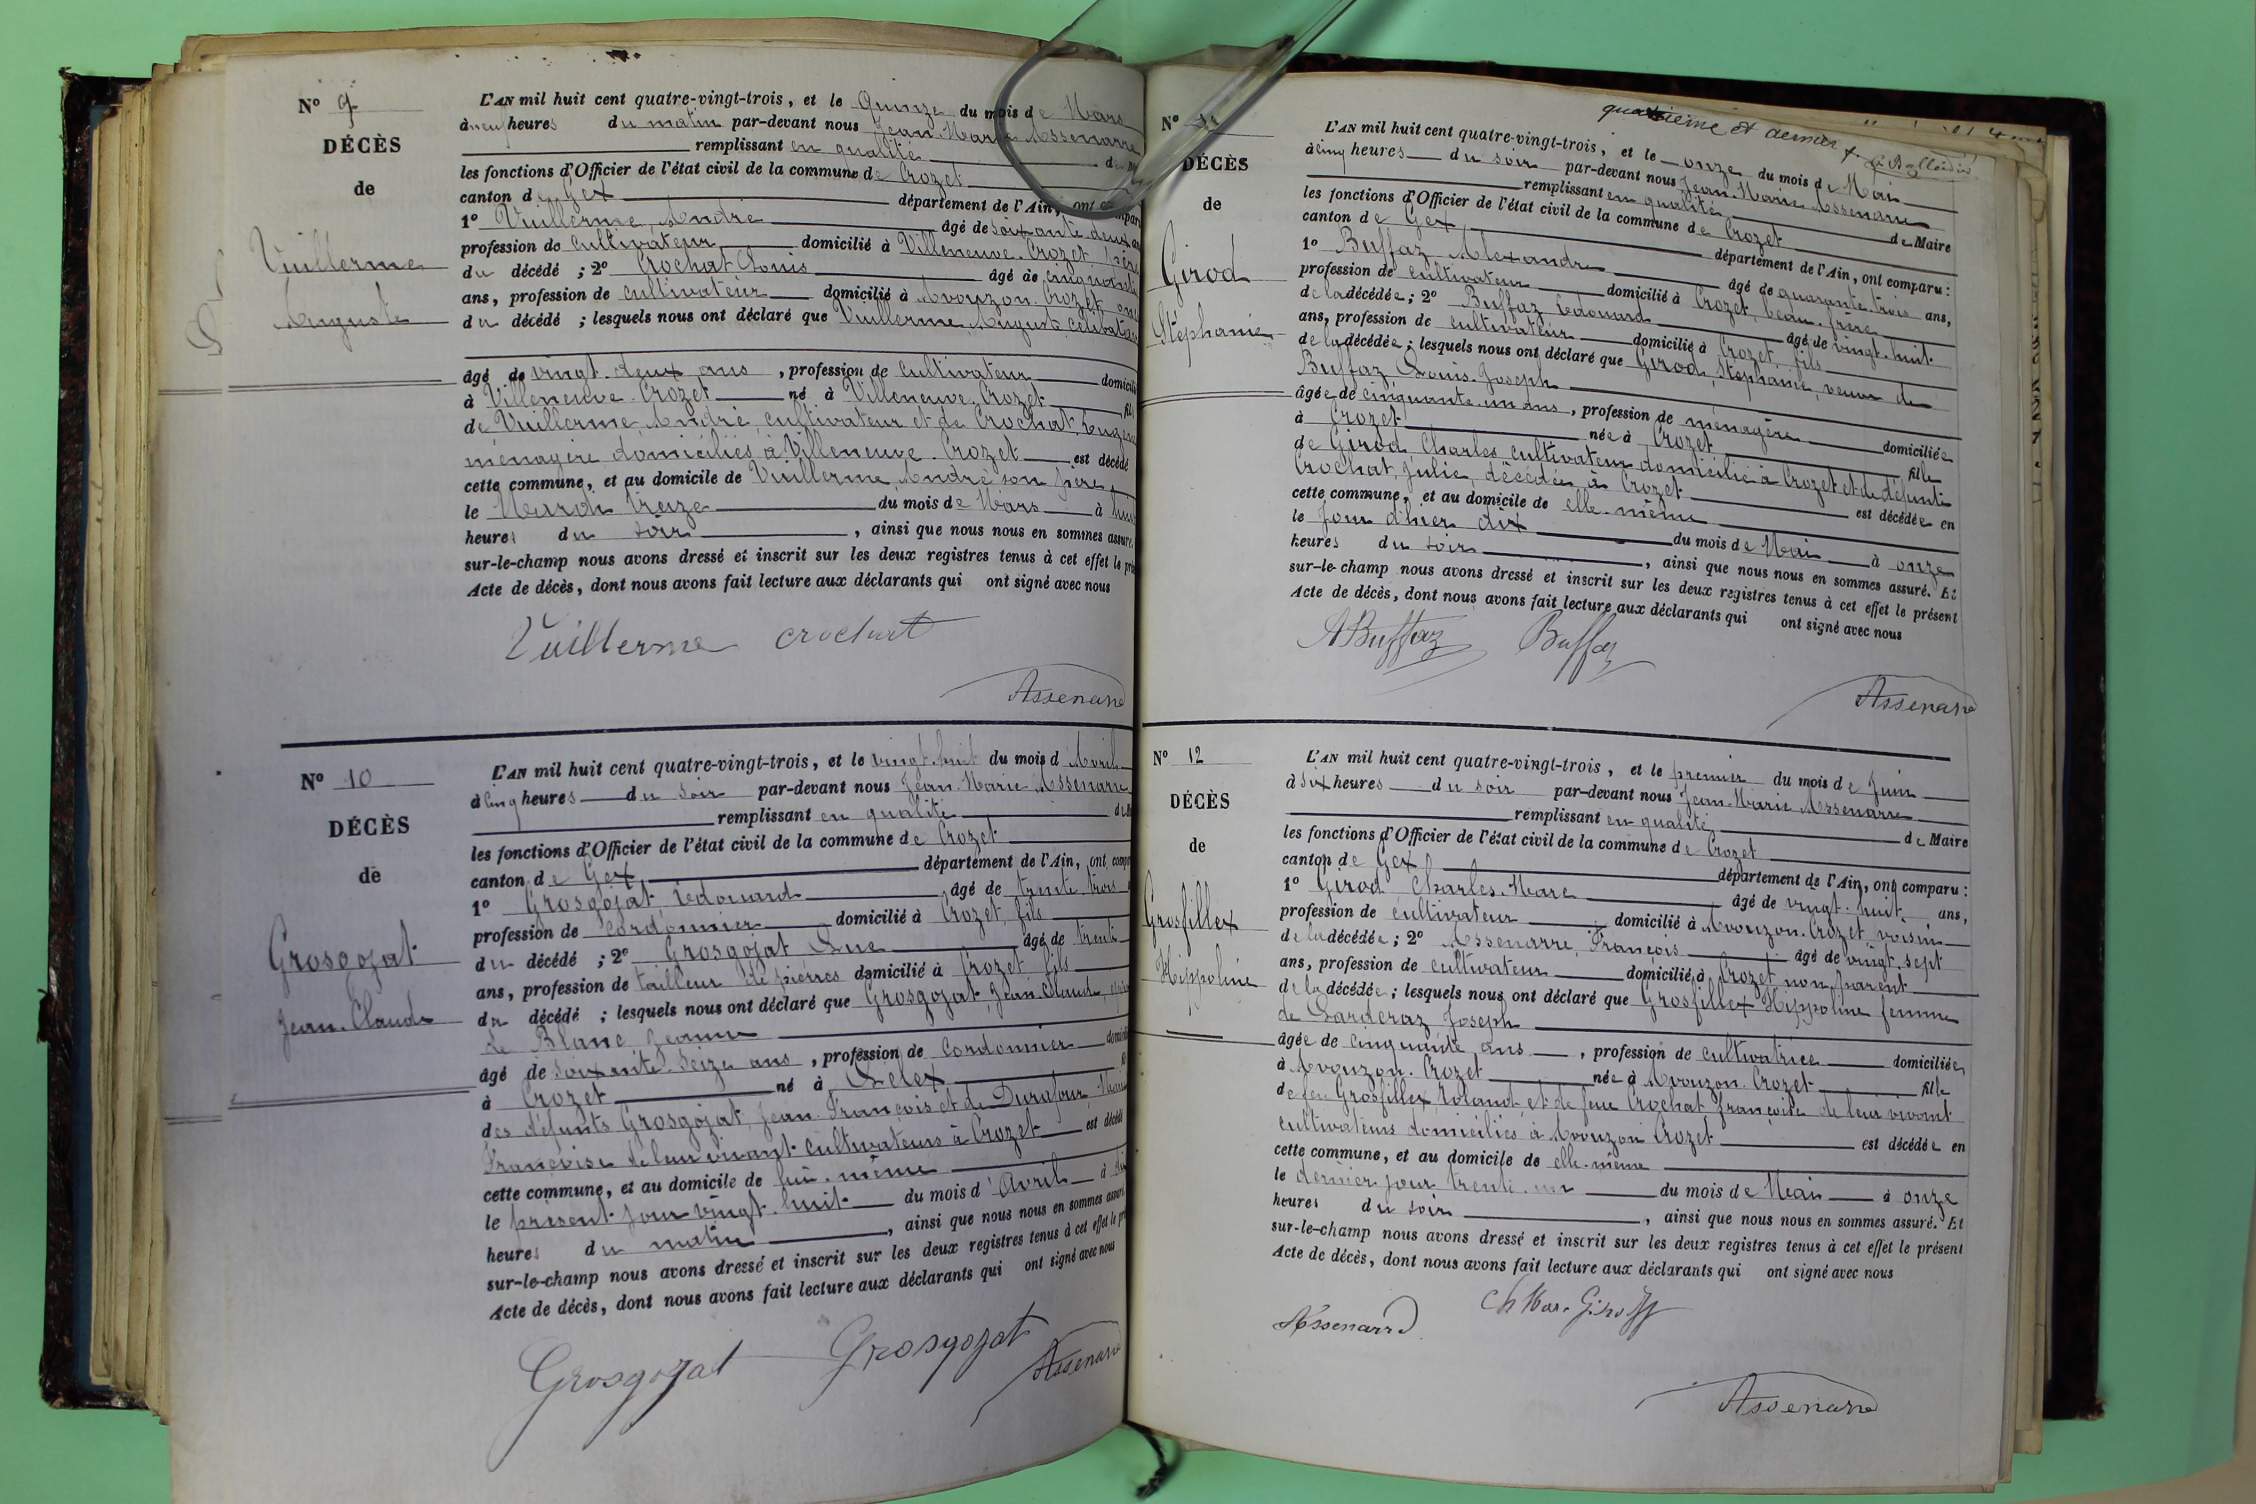 N° 9
DÉCÈS
de
Vuillerme
Auguste
L'AN mil huit cent quatre-vingt-trois, et le Quinze du mois de Mars
à neuf heures du matin par-devant nous Jean-Marie Assenarre
remplissant en qualité de
les fonctions d'Officier de l'état civil de la commune de Crozet
canton de Gex département de l'Ain, ont comparu
1° Vuillerme, André âgé de soixante deux
profession de cultivateur domicilié à Villeneuve-Crozet père
du décédé ; 2° Crochat Louis âgé de cinquante
ans, profession de cultivateur domicilié à Avouzon-Crozet
du décédé ; lesquels nous ont déclaré que Vuillerme Auguste, célibataire
âgé de vingt-deux ans , profession de cultivateur domicilié
à Villeneuve-Crozet né à Villeneuve-Crozet fils
de Vuillerme, André, cultivateur et de Crochat,
ménagère domiciliés à Villeneuve-Crozet est décédé
cette commune, et au domicile de Vuillerme, André son père
le Mardi treize du mois de Mars à
heures du soir , ainsi que nous nous en sommes assuré.
sur-le-champ nous avons dressé et inscrit sur les deux registres tenus à cet effet le
Acte de décès, dont nous avons fait lecture aux déclarants qui ont signé avec nous
Vuillerme crochat
Assenarre
N° 10
DÉCÈS
de
Grosgojat
Jean-Claude
L'AN mil huit cent quatre-vingt-trois, et le vingt-huit du mois d Avril
à cinq heures du soir par-devant nous Jean-Marie Assenarre
remplissant en qualité de
les fonctions d'Officier de l'état civil de la commune de Crozet
canton de Gex département de l'Ain, ont
1° Grosgojat, Edouard âgé de trente-trois
profession de cordonnier domicilié à Crozet, fils
du décédé ; 2° Grosgojat Luc âgé de trente
ans, profession de tailleur de pierres domicilié à Crozet fils
du décédé ; lesquels nous ont déclaré que Grosgojat, Jean-Claude,
de Blanc Jeanne
âgé de soixante-seize ans , profession de cordonnier
à Crozet né à Lelex
des défunts Grosgojat, Jean-François et de Durafour
Françoise de leur vivant cultivateurs à Crozet est décédé
cette commune, et au domicile de lui-même
le présent jour vingt-huit du mois d'Avril à
heures du matin , ainsi que nous nous en sommes assuré
sur-le-champ nous avons dressé et inscrit sur les deux registres tenus à cet effet le
Acte de décès, dont nous avons fait lecture aux déclarants qui ont signé avec nous
Grosgojat Grosgojat
Assenarre
quatrième et dernier
N° 11
DÉCÈS
de
Girod
Stéphanie
L'AN mil huit cent quatre-vingt-trois, et le onze du mois de Mai
à cinq heures du soir par-devant nous Jean-Marie Assenarre
remplissant en qualité de Maire
les fonctions d'Officier de l'état civil de la commune de Crozet
canton de Gex département de l'Ain, ont comparu :
1° Buffaz, Alexandre âgé de quarante-trois ans,
profession de cultivateur domicilié à Crozet, beau-frère
de la décédée ; 2° Buffaz Edouard âgé de vingt-huit
ans, profession de cultivateur domicilié à Crozet, fils
de la décédée ; lesquels nous ont déclaré que Girod, Stéphanie, veuve de
Buffaz Louis-Joseph
âgée de cinquante-un ans , profession de ménagère domiciliée
à Crozet née à Crozet fille
de Girod Charles cultivateur domicilié à Crozet et de défunte
Crochat, Julie, décédée à Crozet est décédée en
cette commune, et au domicile de elle-même
le jour d'hier dix du mois de Mai à onze
heures du soir , ainsi que nous nous en sommes assuré. Et
sur-le-champ nous avons dressé et inscrit sur les deux registres tenus à cet effet le présent
Acte de décès, dont nous avons fait lecture aux déclarants qui ont signé avec nous
A Buffaz Buffaz
Assenarre
N° 12
DÉCÈS
de
Grosfillex
Hippoline
L'AN mil huit cent quatre-vingt-trois, et le premier du mois de Juin
à six heures du soir par-devant nous Jean-Marie Assenarre
remplissant en qualité de Maire
les fonctions d'Officier de l'état civil de la commune de Crozet
canton de Gex département de l'Ain, ont comparu :
1° Girod Charles-Marc âgé de vingt-huit ans,
profession de cultivateur domicilié à Avouzon-Crozet voisin
de la décédée ; 2° Assenarre, François âgé de vingt-sept
ans, profession de cultivateur domicilié à Crozet non parent
de la décédée ; lesquels nous ont déclaré que Grosfillex Hippoline femme
de Larderaz Joseph
âgée de cinquante ans , profession de cultivatrice domiciliée
à Avouzon-Crozet née à Avouzon-Crozet fille
de feu Grosfillex, Roland et de feue Crochat françoise de leur vivant
cultivateurs domiciliés à Avouzon Crozet est décédée en
cette commune, et au domicile de elle-même
le dernier jour trente-un du mois de Mai à onze
heures du soir , ainsi que nous nous en sommes assuré. Et
sur-le-champ nous avons dressé et inscrit sur les deux registres tenus à cet effet le présent
Acte de décès, dont nous avons fait lecture aux déclarants qui ont signé avec nous
Assenarre Ch Marc Girod
Assenarre